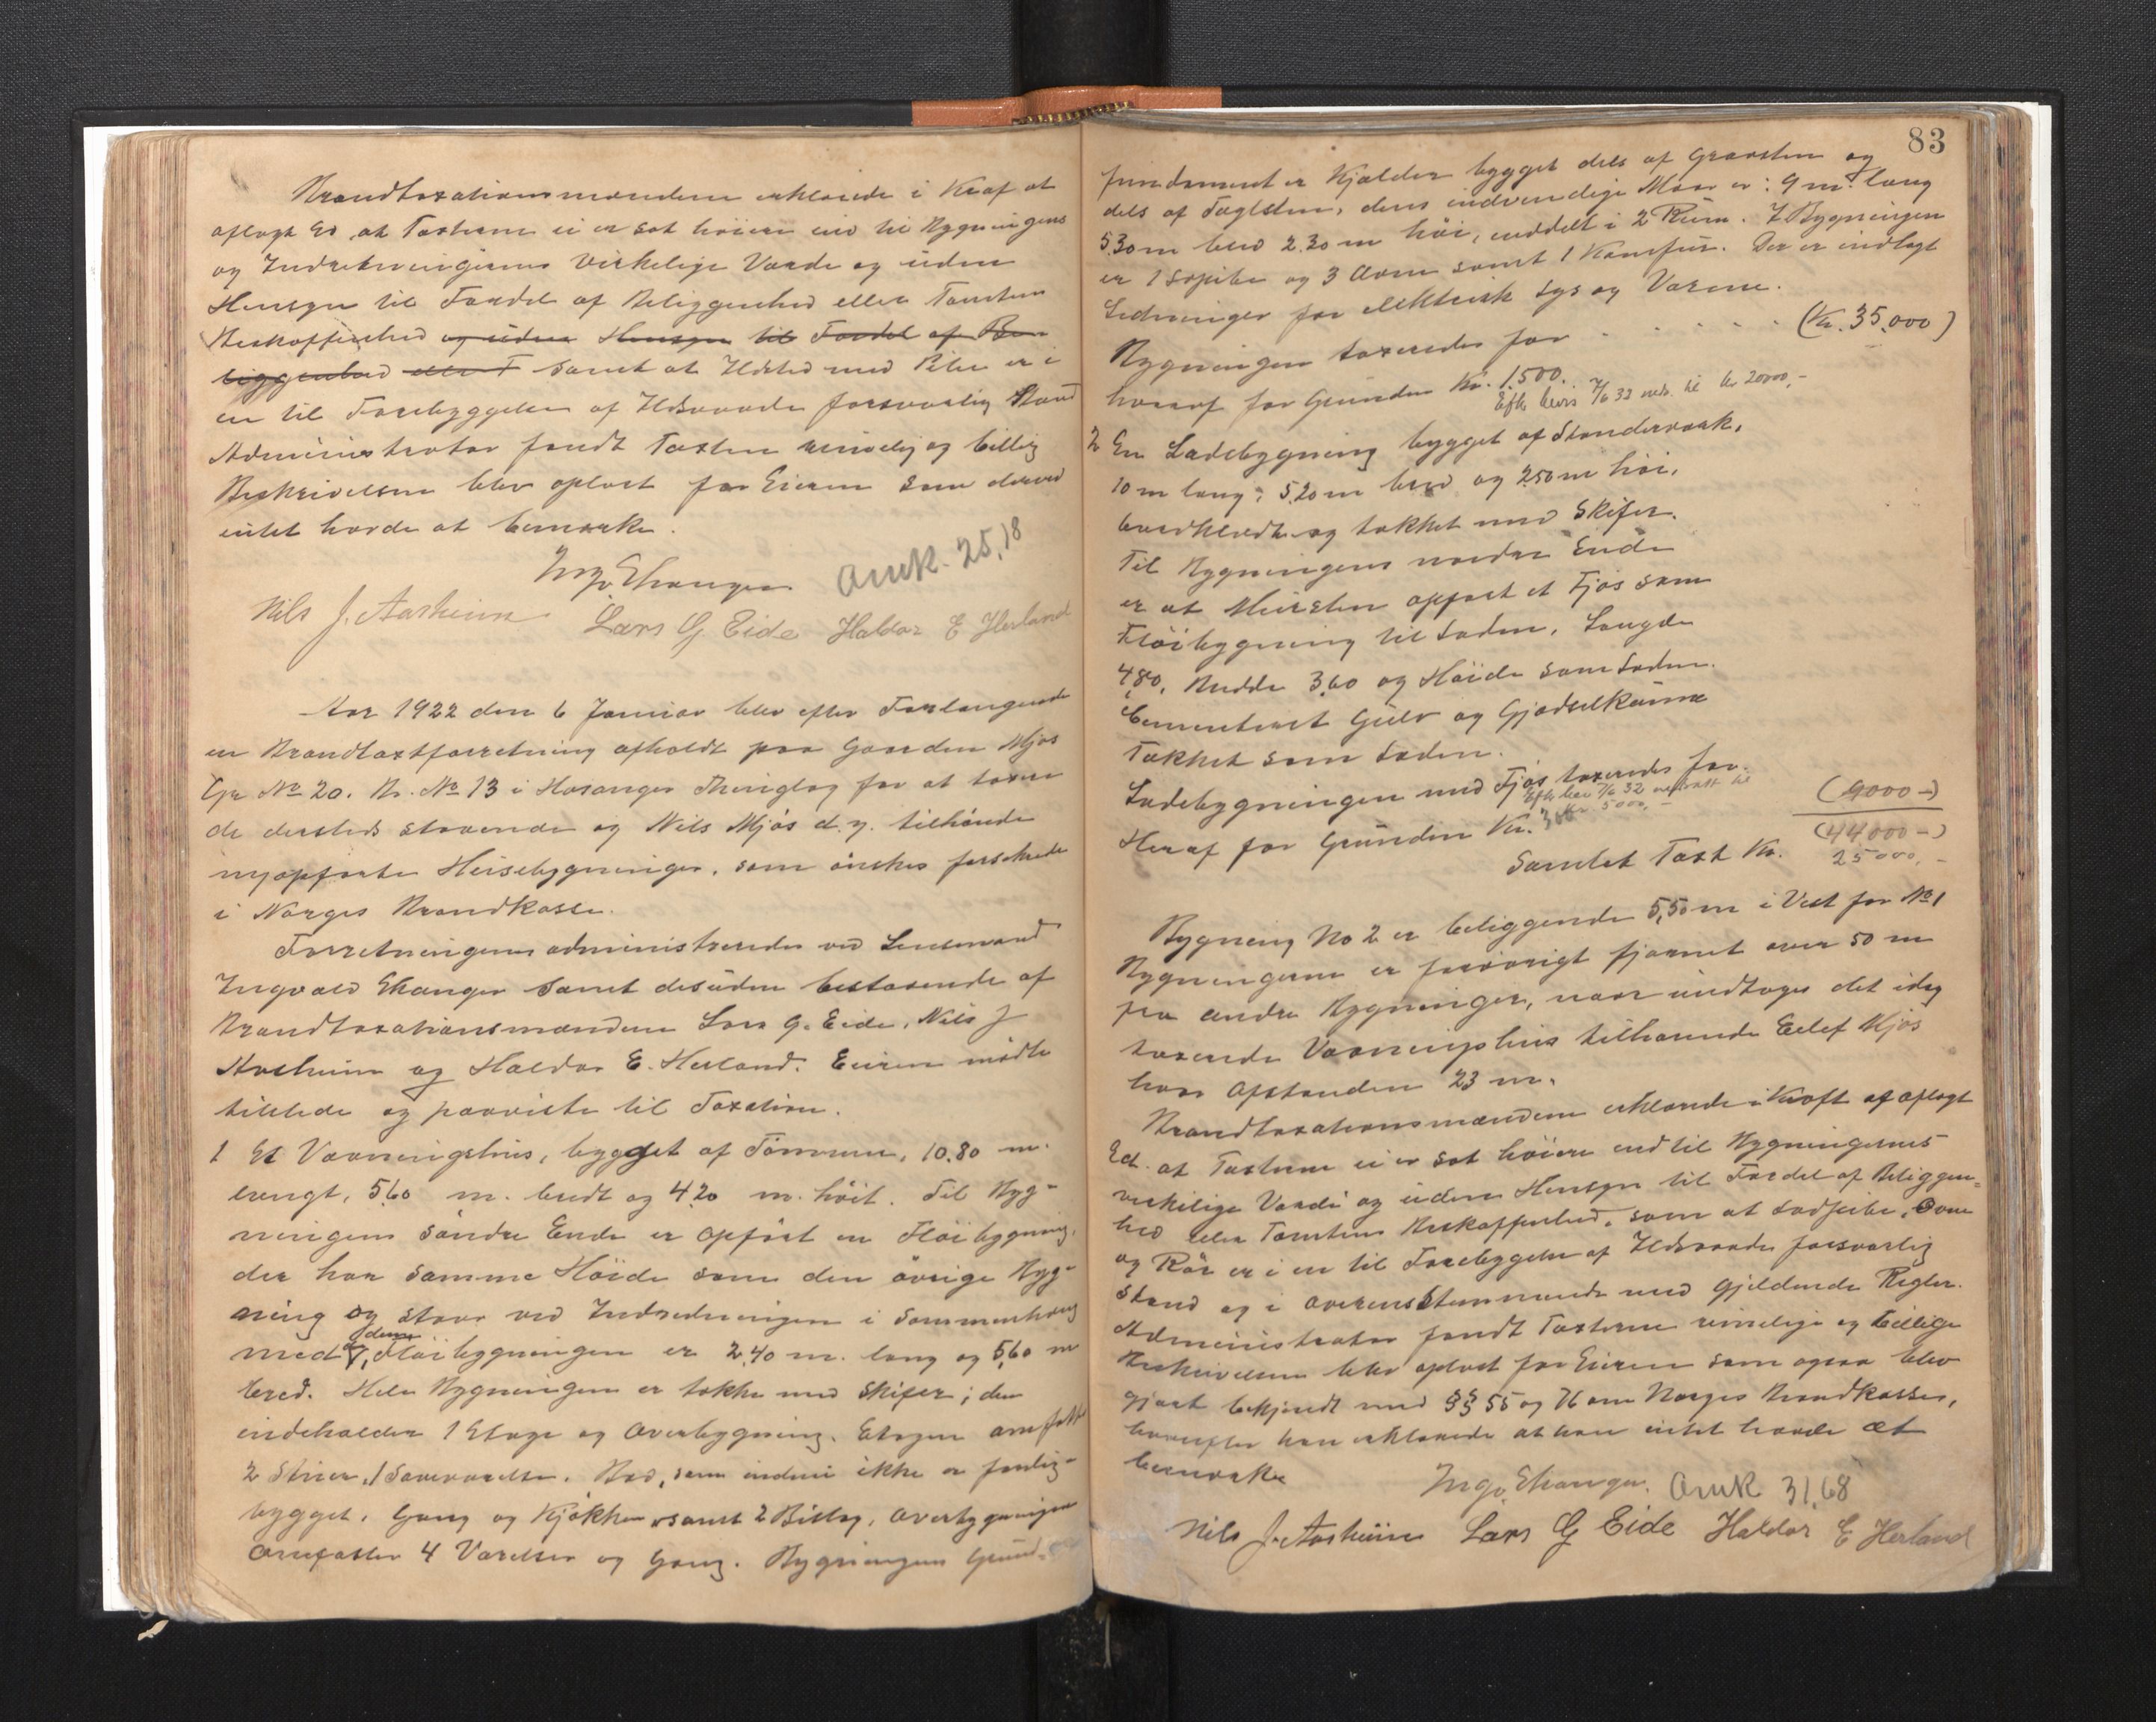 Brandtaxationsmændene erklærede i Kraf at
aflagt Ed at Taxterne ei er sat høiere end til Bygningens
og Indretningernes virkelige Værde og uden
Hensyn til Fordel af Beliggenhed eller Tomtens
Beskaffenhed og uden Hensyn til Fordel af Be-
liggenhed eller T samt at Ildsted med Piber er i
en til Forebyggelse af Ildsvaade forsvarlig Stand
Administrator fandt Taxten rimelig og billig
Beskrivelsen blev oplæst for Eieren som derved
intet havde at bemærke.
Ingv. Ekanger Omk. 25,18
Nils J. Aasheim Lars G Eide Haldor E Herland
Aar 1922 den 6 Januar blev efter Forlangende
en Brandtaxtforretning afholdt paa Gaarden Mjøs
Gr No 20. Br. No 13 i Hosanger Thinglag for at taxere
de dersteds staaende og Nils Mjøs d.y. tilhørende
nyopførte Huusebygninger, som ønskes forsikrede
i Norges Brandkasse.
Forretningen administreredes ved Lensmand
Ingvald Ekanger samt desuden bestaaende af
Brandtaxationsmændene Lars G. Eide, Nils J
Aasheim og Haldor E. Herland. Eieren mødte
tilstede og paaviste til Taxation.
1 Et Vaaningshus, bygget af Tømmer, 10.80 m.
langt, 5.60 m. bredt og 4.20 m. høit. Til Byg-
ningens søndre Ende er opført en Fløibygning,
der har samme Høide som den øvrige Byg-
ning og staar ved Indredningen i Sammenhæng
med denne, Fløibygningen er 2.40 m. lang og 5,60 m
bred. Hele Bygningen er tække med Skifer; den
indeholder 1 Etage og Overbygning. Etagen omfatter
2 Stuer, 1 Soveværelse. Bad, som endnu ikke er færdig-
bygget, Gang og Kjøkken samt 2 Bislag, Overbygningen
omfatter 4 Værelser og Gang. Bygningens Grund-
83
fundament er Kjælder bygget dels af Graasten og
dels af Taglsten, dens indvendige Maar er: 9 m. lang
5.30 m bred 2.30 m høi, inddelt i 2 Rum. I Bygningen
er 1 Sopibe og 3 Ovne samt 1 Komfur. Der er indlagt
Ledninger for elektrisk Lys og Varme.
Bygningen taxeredes for . . . . . (Kr. 35.000)
hvoraf for Grunden Kr. 1.500.
Efth. bevis 7/6 32 neds. til kr 20000,-
2 En Ladebygning bygget af Stenderværk,
10 m lang, 5,20 m bred og 2.50 m høi,
bordklædt og tækket med Skifer.
Til Bygningens nordre Ende
er at Mursten opført et Fjøs som
Fløibygning til Laden. Længde
4,80, Bredde 3,60 og Høide som Laden.
Cementeret Gulv og Gjødselkum
Tækket som Laden.
Ladebygningen med Fjøs taxeredes for. (9000-)
Efth. bev 7/6 32 nedsatt til
Kr. 5000,-
Heraf for Grunden Kr. 300
Samlet Taxt Kr. (44.000-)
25000,-
Bygning No 2 er beliggende 5,50 m i Vest for No 1
Bygningerne er forøvrigt fjærnet over 50 m
fra andre Bygninger, naar undtages det idag
taxerede Vaaningshus tilhørende Eilef Mjøs
hvor Afstanden 23 m.
Brandtaxationsmændene erklærede i Kraft af aflagt
Ed. at Taxterne ei er sat høiere end til Bygningernes
virkelige Værdi og uden Hensyn til Fordel af Beliggen-
hed eller Tomtens Beskaffenhed, som at Lodpibe, Ovne
og Rør er i en til Forebygelse af Ildsvaade forsvarlig
Stand og i Overensstemmende med gjeldende Regler.
Administrator fandt Taxterne rimelige og billige
Beskrivelsen blev oplæst for Eieren som ogsaa blev
gjort bekjendt med §§ 55 og 76 om Norges Brandkasse,
hvorefter han erklærede at han intet havde at
bemærke
Ingv. Ekanger. Omk 31,68
Nils J. Aasheim Lars G Eide Haldor E Herland